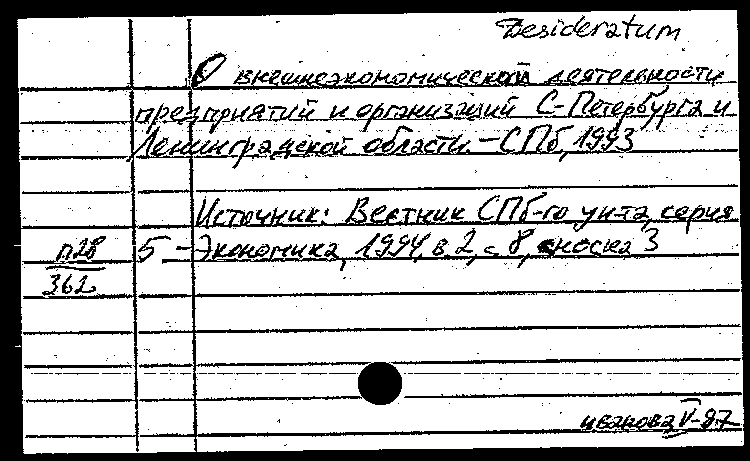 Desideratum
О внешнеэкономической деятельности
предприятий и организаций С-Петербурга и
Ленинградской области. - СПб, 1993
Источник: Вестник СПб-го ун-та, серия
п28 5 - Экономика, 1994, в 2, с 8, сноска 3
362
иванова V-97